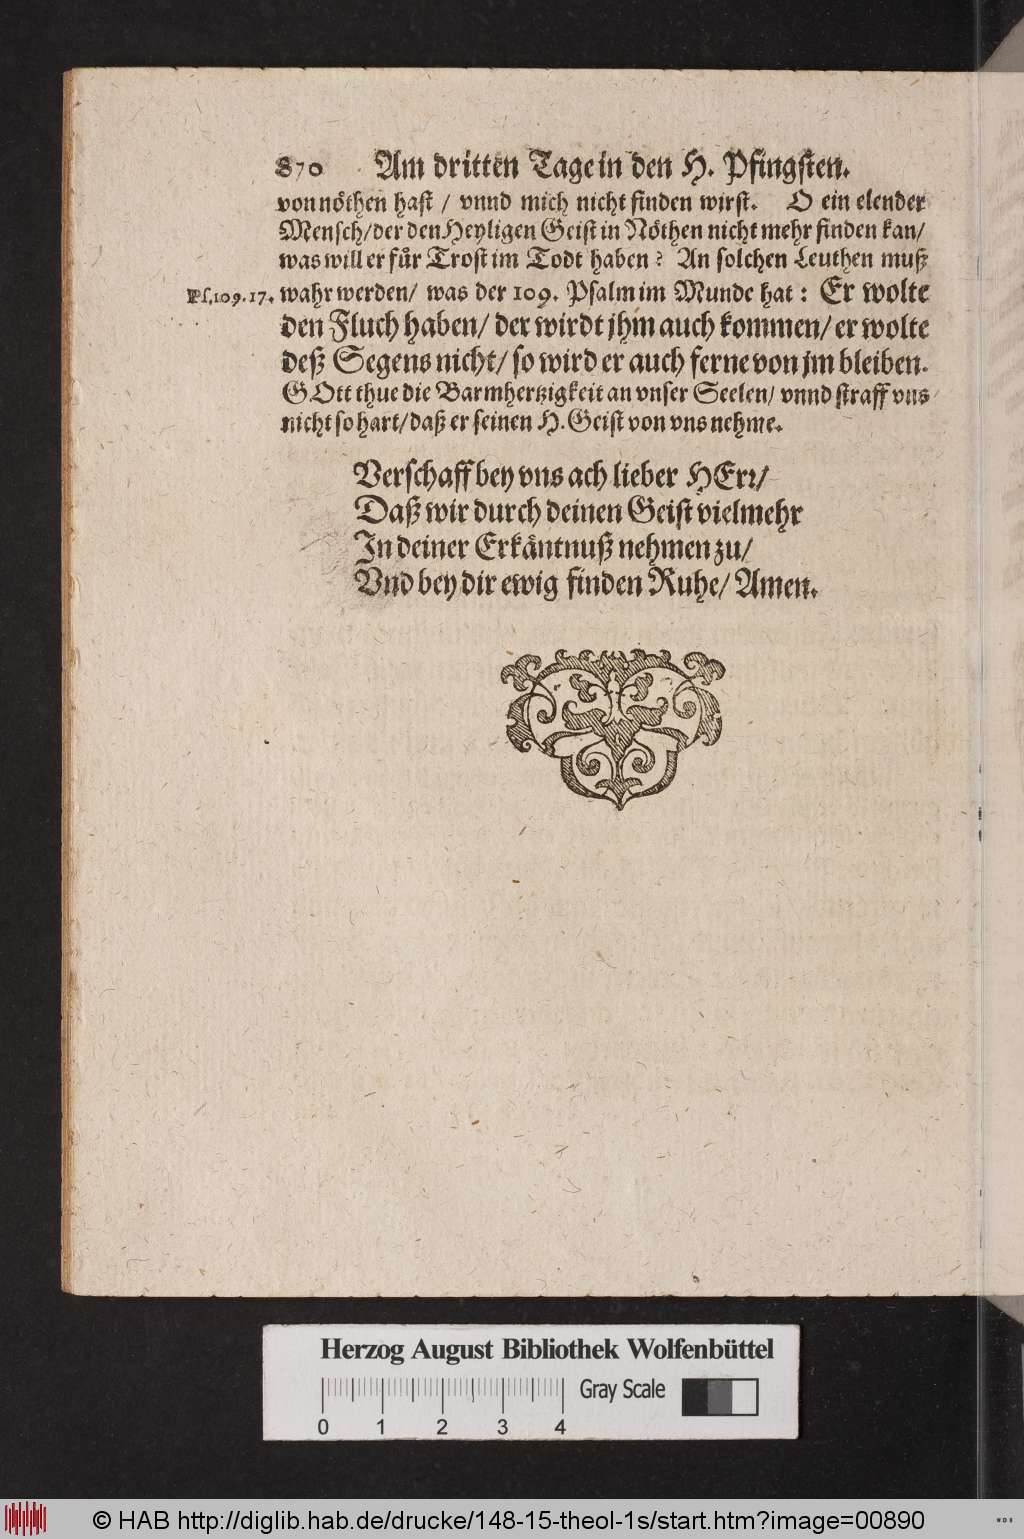 870 Am dritten Tage in den H. Pfingsten.
von nöthen hast / vnnd mich nicht finden wirst. O ein elender
Mensch/ der den Heyligen Geist in Nöthen nicht mehr finden kan/
was will er für Trost im Todt haben? An solchen Leuthen muß
Ps. 109. 17. wahr werden/ was der 109. Psalm im Munde hat: Er wolte
den Fluch haben/ der wirdt jhm auch kommen/ er wolte
deß Segens nicht/ so wird er auch ferne von jm bleiben.
GOtt thue die Barmhertzigkeit an vnser Seelen/ vnnd straff vns
nicht so hart/ daß er seinen H. Geist von vns nehme.
Verschaff bey vns ach lieber HErr/
Daß wir durch deinen Geist vielmehr
In deiner Erkäntnuß nehmen zu/
Vnd bey dir ewig finden Ruhe/ Amen.
Herzog August Bibliothek Wolfenbüttel
Gray Scale
0 1 2 3 4
© HAB http://diglib.hab.de/drucke/148-15-theol-1s/start.htm?image=00890